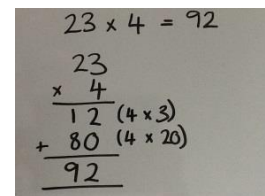 23 x 4 = 92
23
x 4
12 (4 x 3)
+ 80 (4 x 20)
92